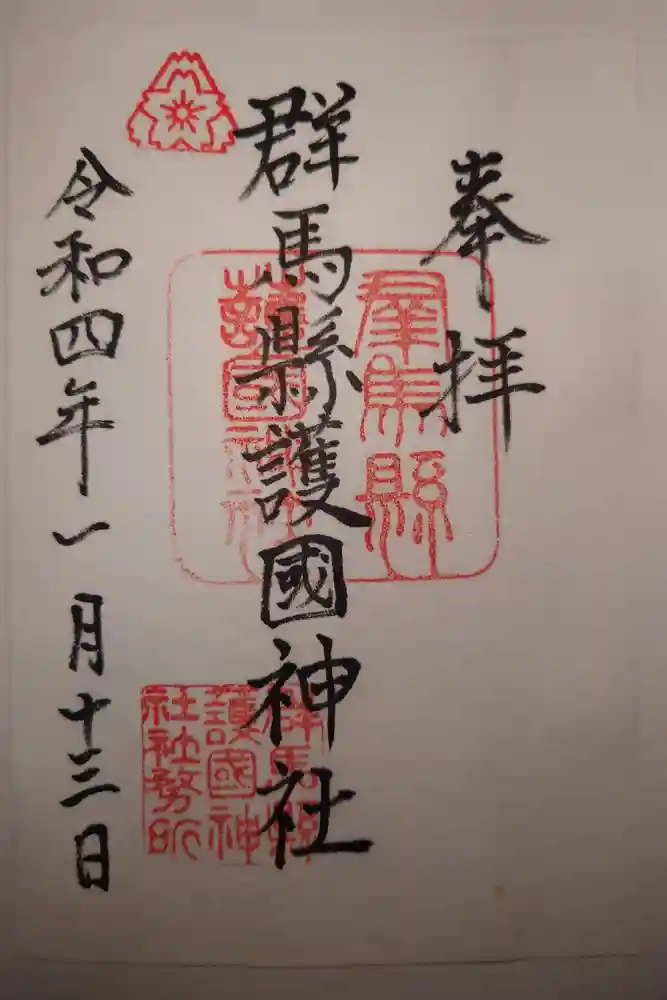 奉拝
群馬縣護國神社
令和四年一月十三日
群馬縣
護國神社
群馬縣
護國神
社社務所